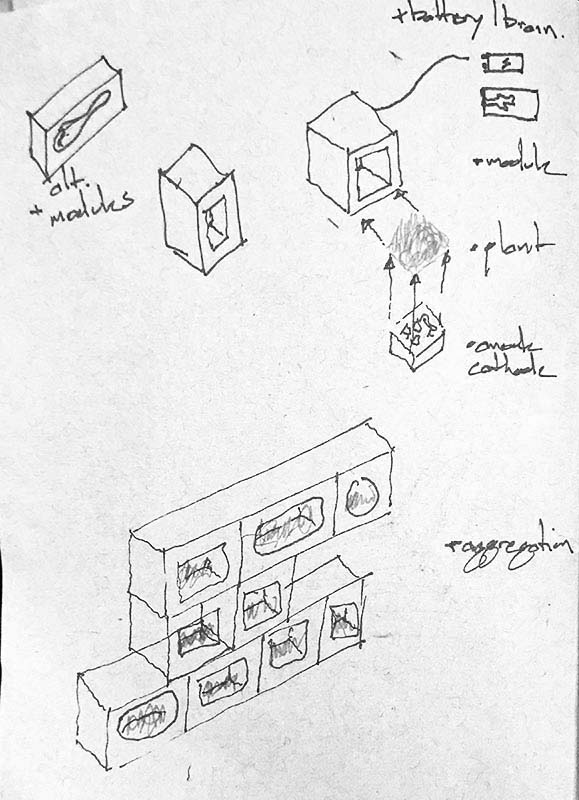 +battery/brain.
alt.
+ modules
+module
•plant
•anode
cathode
+aggregation